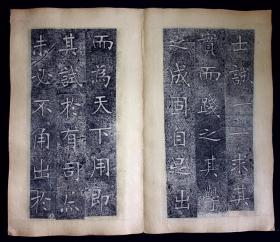 士說一一求其
實而踐之其學
之成固自足出
而為天下用即
其試於有司亦
未必不角出於